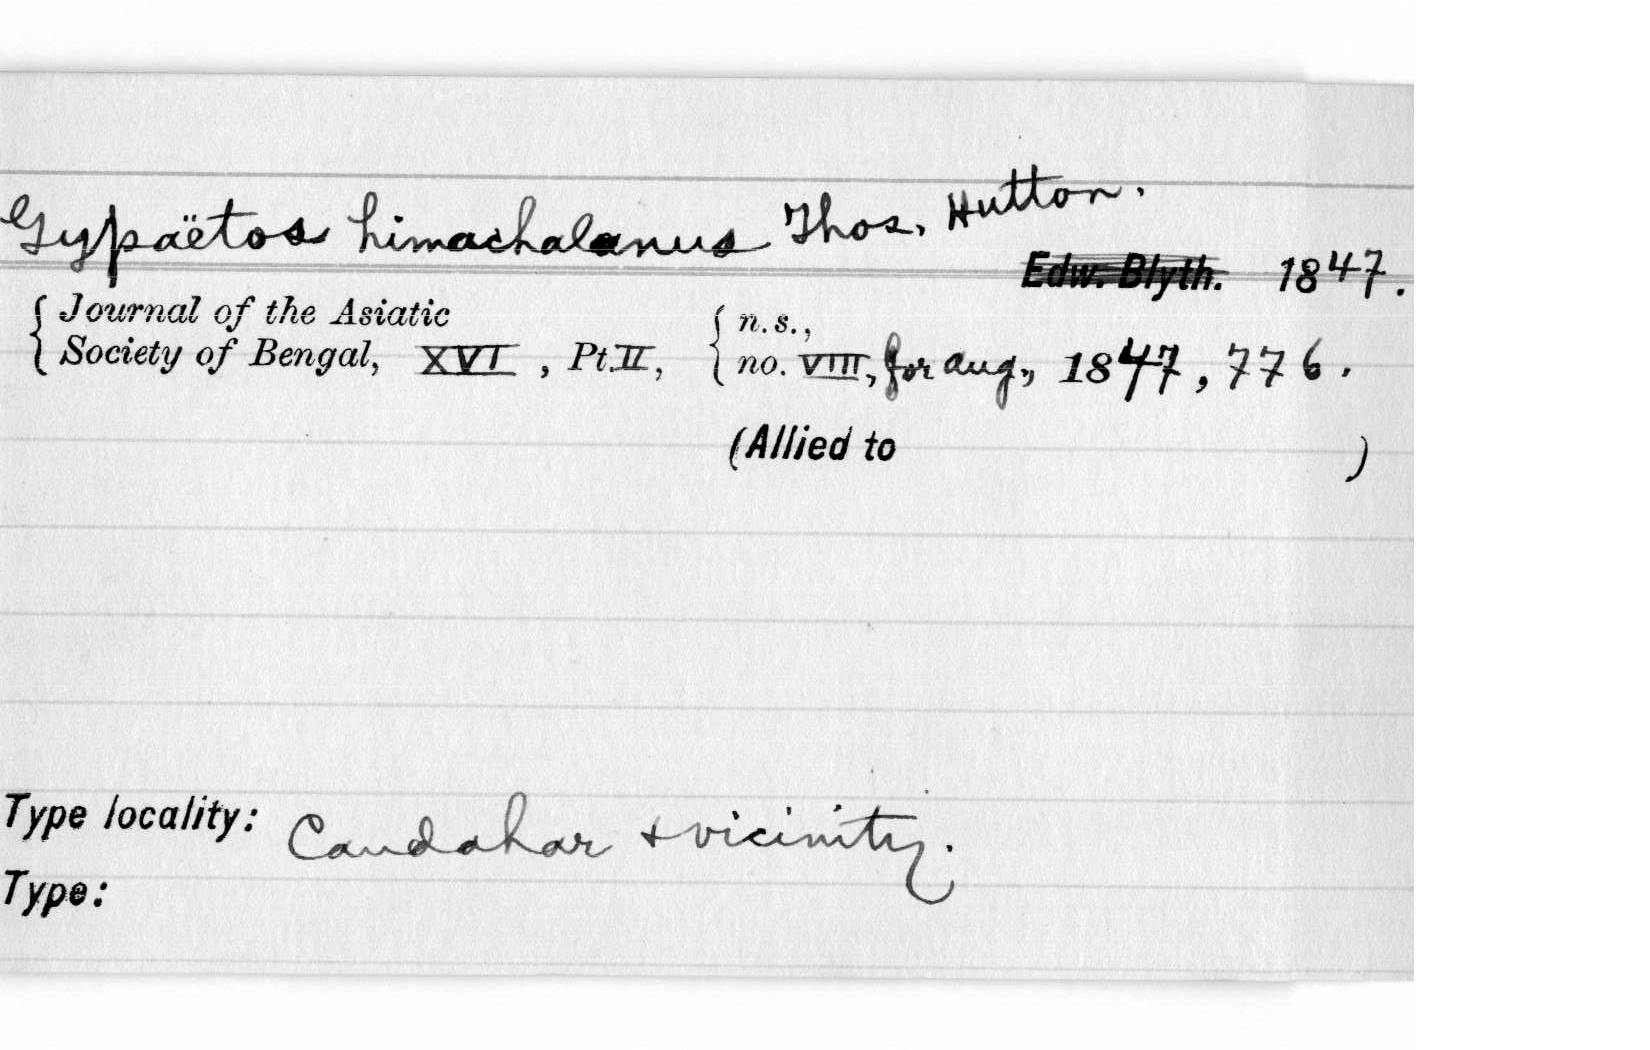 Gypaëtos himachalanus Thos. Hutton.
Edw. Blyth. 1847.
{ Journal of the Asiatic { n.s.,
{ Society of Bengal, XVI, Pt. II, { no. VIII, for Aug., 1847, 776.
(Allied to )
Type locality: Candahar & vicinity.
Type: